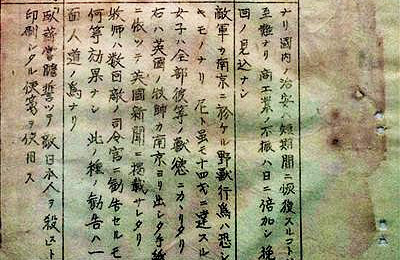 ナリ国内ノ治安ハ短期間ニ恢復スルコト
至難ナリ商工業ノ不振ハ日ニ倍加シ挽
回ノ見込ナシ
敵軍カ南京ニ於ケル野獣行為ハ恐シ
キモノナリ 尼ト雖モ十四才ニ達スル
女子ハ全部彼等ノ獣慾ニカヽリタリ
右ハ英国ノ牧師カ南京ヨリ出シタ手紙
ニ依ツテ英国新聞ニ掲載サレタリ
牧師ハ数回敵ノ司令官ニ勧告セルモ
何等効果ナシ 此ノ種ノ勧告ハ一
面人道ノ為ナリ
臥薪嘗胆誓ツテ敵日本人ヲ殺スト
印刷シタル便箋ヲ使用ス